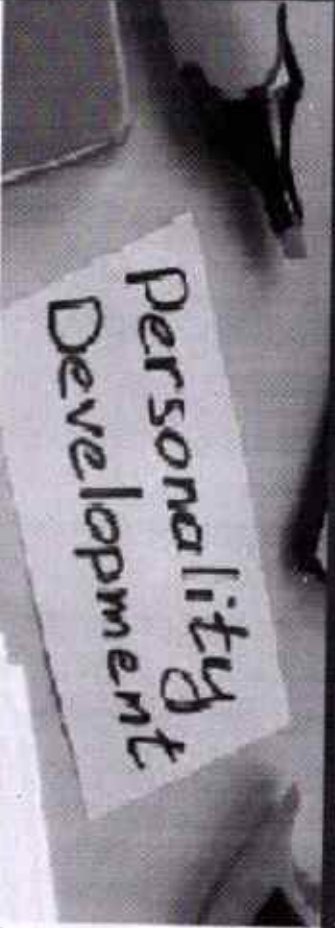 Personality
Development